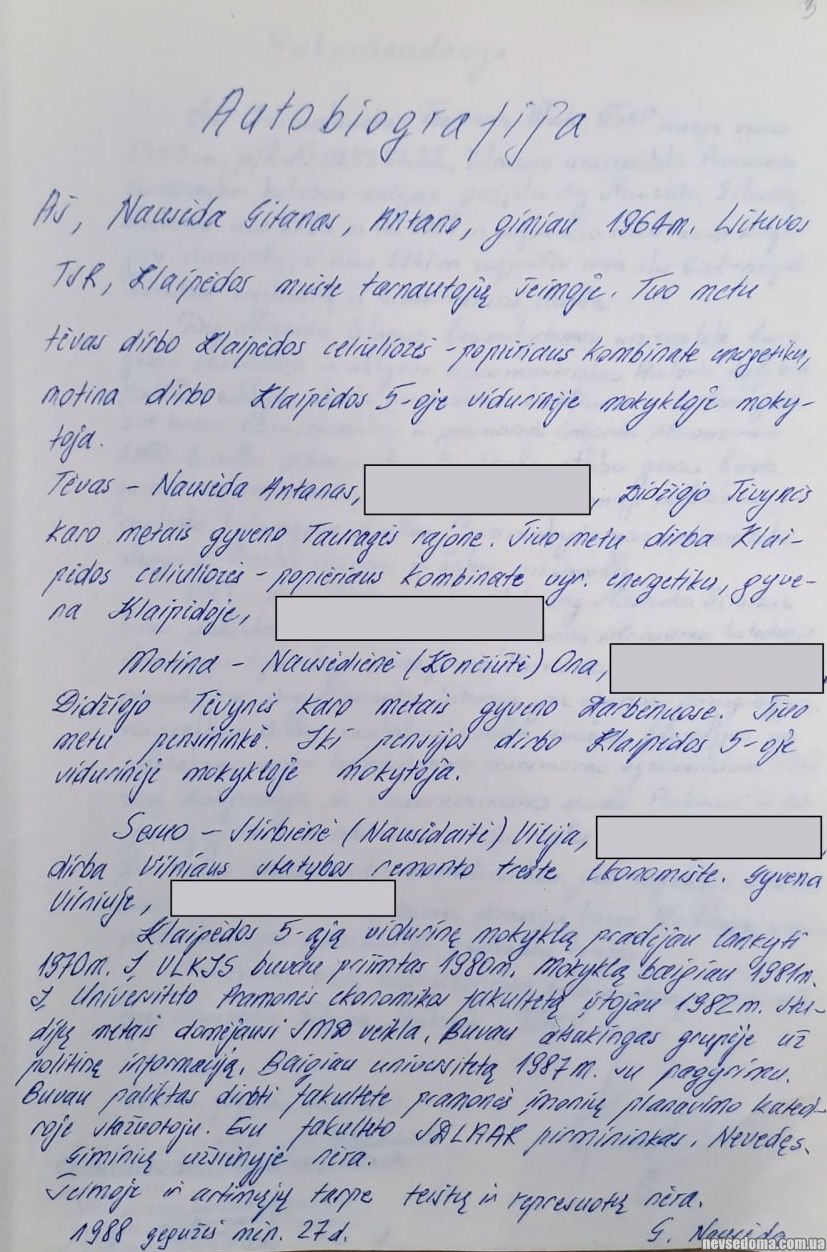 Autobiografija
Aš, Nausėda Gitanas, Antano, gimiau 1964m. Lietuvos
TSR, Klaipėdos mieste tarnautojų šeimoje. Tuo metu
tėvas dirbo Klaipėdos celiuliozės-popieriaus kombinate energetiku,
motina dirbo Klaipėdos 5-oje vidurinėje mokykloje moky-
toja.
Tėvas - Nausėda Antanas, , Didžiojo Tėvynės
karo metais gyveno Tauragės rajone. Šiuo metu dirba Klai-
pėdos celiuliozės-popieriaus kombinate vyr. energetiku, gyve-
na Klaipėdoje,
Motina - Nausėdienė (Končiūtė) Ona, ,
Didžiojo Tėvynės karo metais gyveno Darbėnuose. Šiuo
metu pensininkė. Iki pensijos dirbo Klaipėdos 5-oje
vidurinėje mokykloje mokytoja.
Sesuo - Stirbienė (Nausėdaitė) Vilija, ,
dirba Vilniaus statybos remonto treste ekonomiste. Gyvena
Vilniuje,
Klaipėdos 5-ąją vidurinę mokyklą pradėjau lankyti
1970m. Į VLKJS buvau priimtas 1980m. Mokyklą baigiau 1981m.
Į Universiteto Pramonės ekonomikos fakultetą įstojau 1982m. Stu-
dijų metais domėjausi SMD veikla. Buvau atsakingas grupėje už
politinę informaciją. Baigiau universitetą 1987m. su pagyrimu.
Buvau paliktas dirbti fakultete pramonės įmonių planavimo kated-
roje stažuotoju. Esu fakulteto SDLAAR pirmininkas. Nevedęs.
Giminių užsienyje nėra.
Šeimoje ir artimųjų tarpe teistų ir represuotų nėra.
1988 gegužės mėn. 27d. G. Nausėda
nevsedoma.com.ua